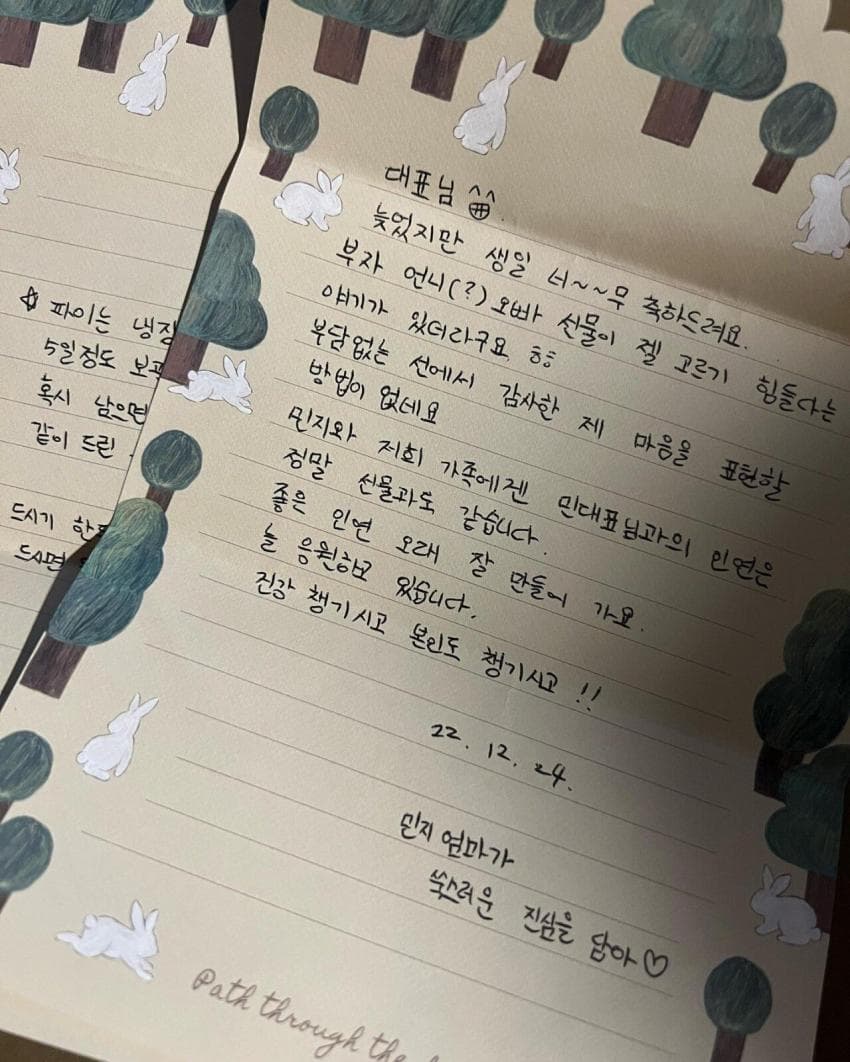 ☆ 파이는 냉장
5일정도 보
혹시 남으면
같이 드린
드시기 한
드시면
대표님
늦었지만 생일 너~~무 축하드려요.
부자 언니(?)오빠 선물이 젤 고르기 힘들다는
얘기가 있더라구요 ㅎㅎ
부담없는 선에서 감사한 제 마음을 표현할
방법이 없네요
민지와 저희 가족에겐 민대표님과의 인연은
정말 선물과도 같습니다.
좋은 인연 오래 잘 만들어 가요.
늘 응원하고 있습니다.
건강 챙기시고 본인도 챙기시고 !!
22. 12. 24.
민지 엄마가
쑥스러운 진심을 담아♡
Path through the